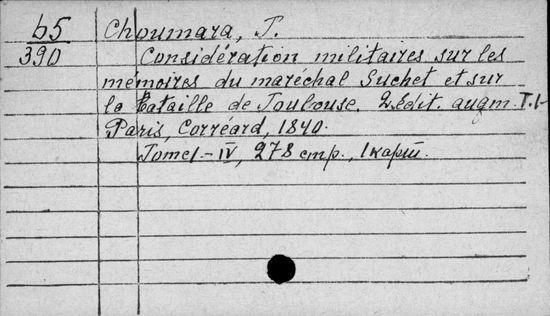 b5 Choumara, T.
390 Considération militaires sur les
mémoires du maréchal Suchet et sur
la bataille de Toulouse. 2.édit. augm. T.1-
Paris, Corréard, 1840.
Tome I.-IV, 278 стр., 1 карт.